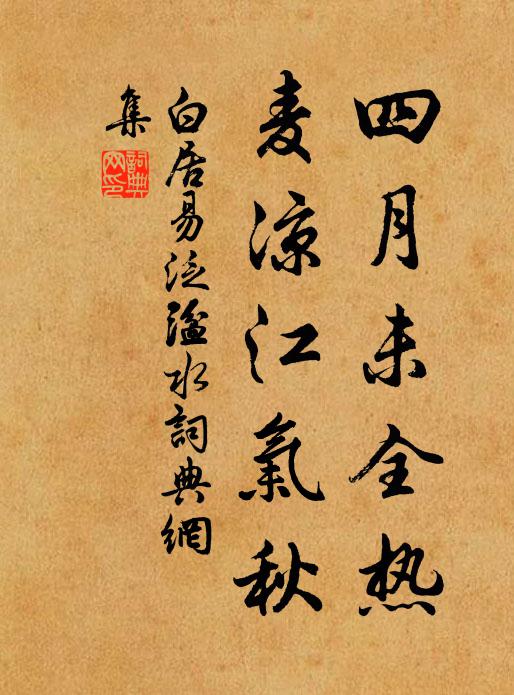 四月未全热
麦凉江氣秋
白居易泛湓水詞典網
集
詞典網印